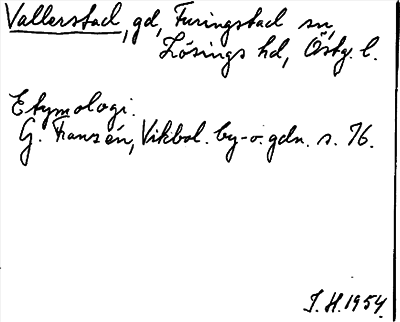 Vallerstad, gd, Furingstad sn,
Lösings hd, Östg. l.
Etymologi.
G. Franzén, Vikbol. by-o. gdn. s. 76.
I. H. 1954.